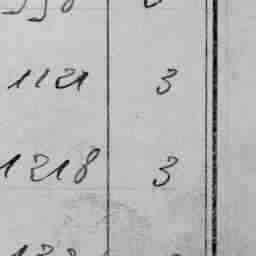 1121 3
1218 3